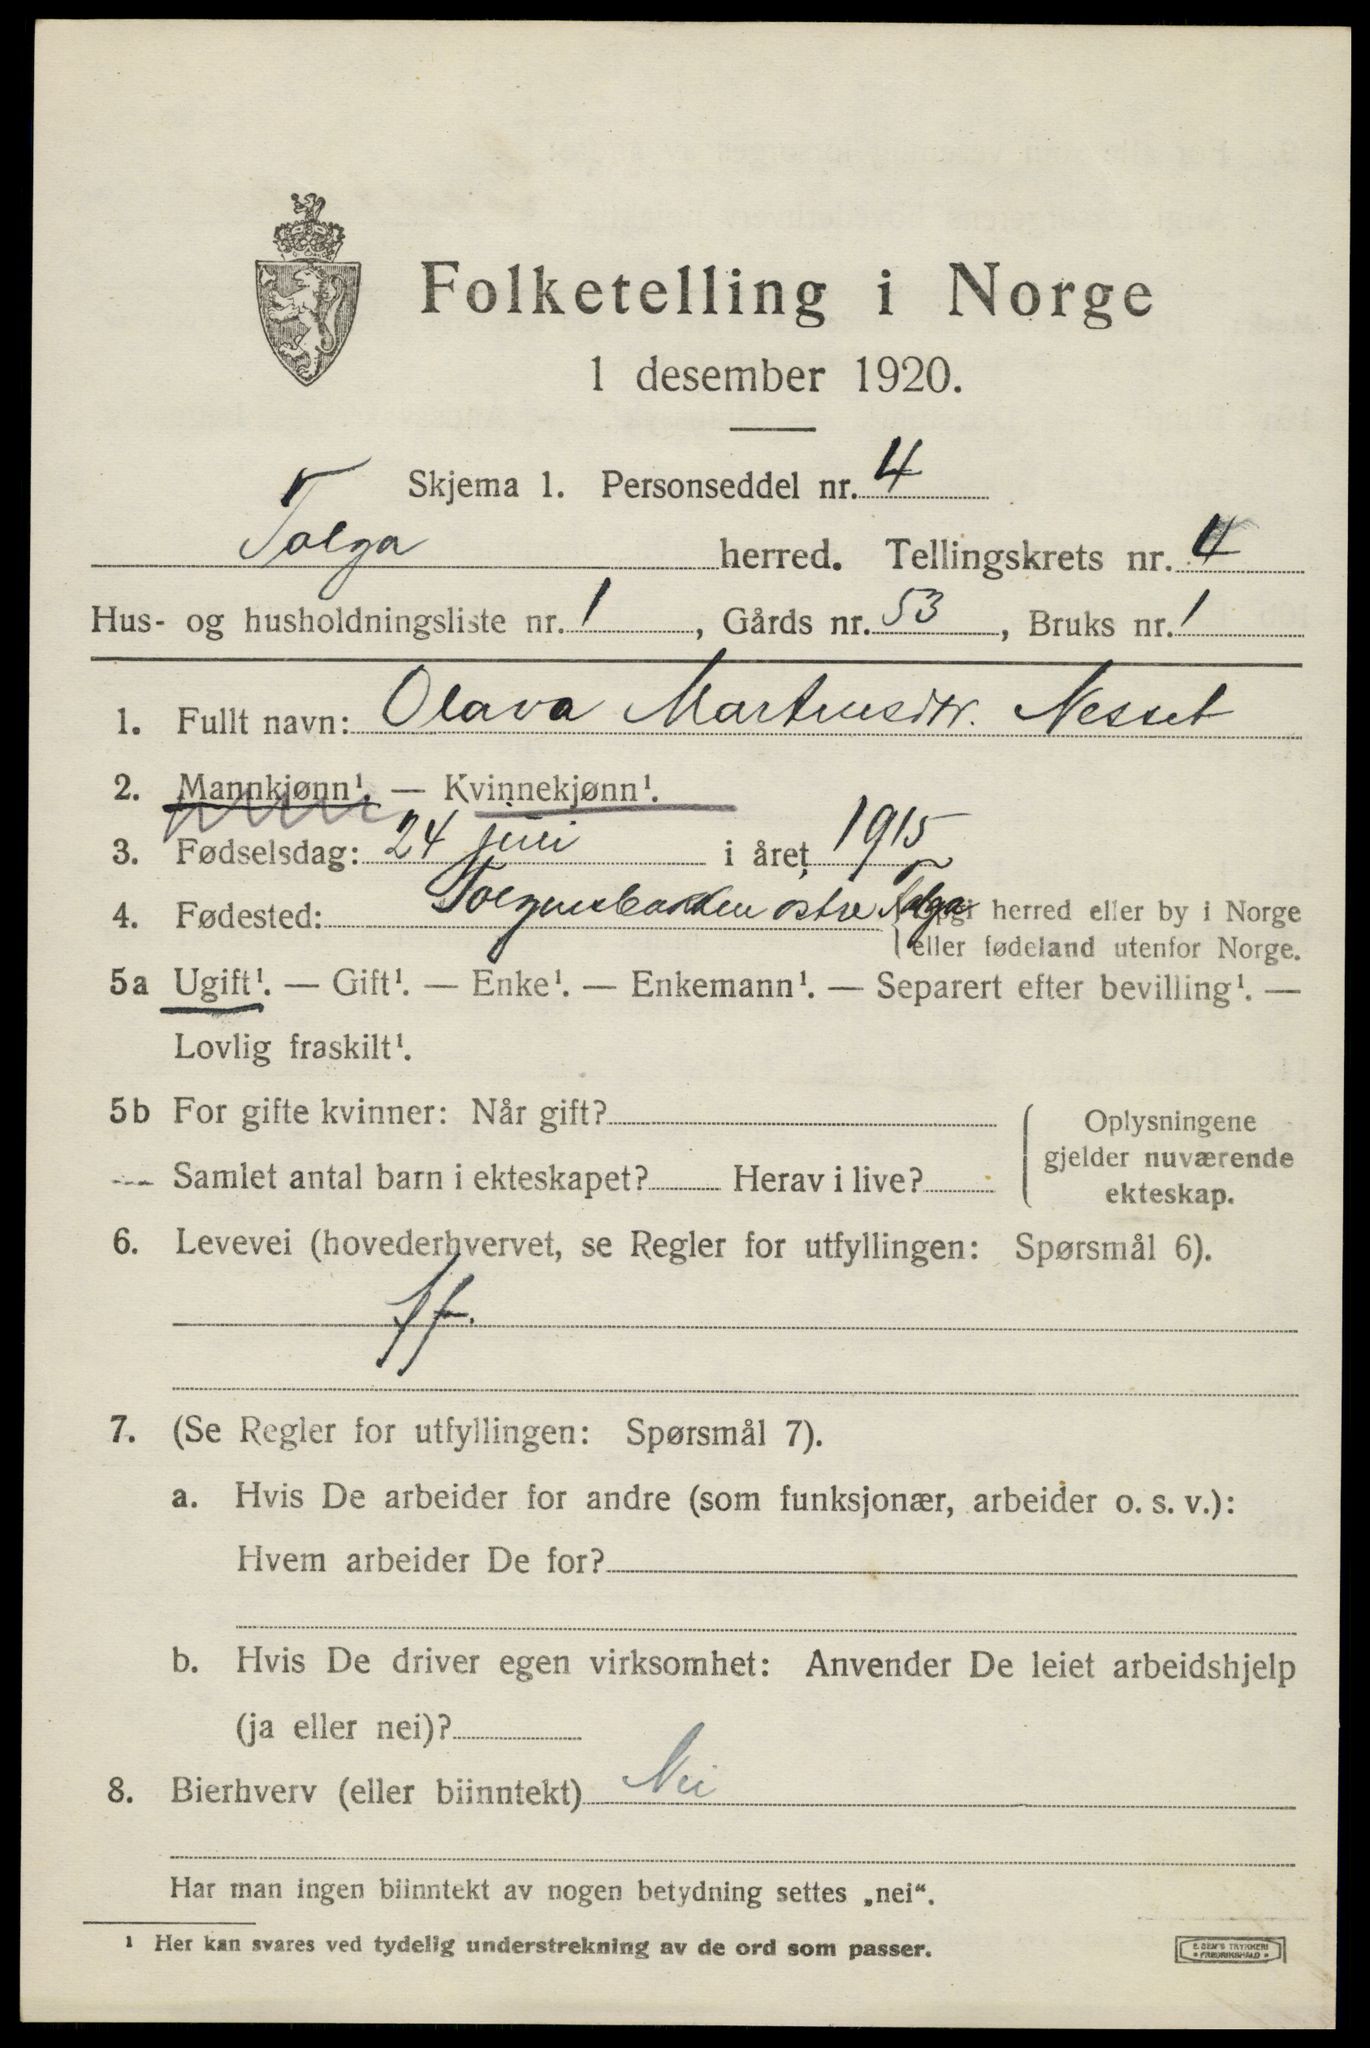 Folketelling i Norge
1 desember 1920.
Skjema 1. Personseddel nr. 4
Tolga herred. Tellingskrets nr. 4
Hus- og husholdningsliste nr. 1, Gårds nr. 53, Bruks nr. 1
1. Fullt navn: Olava Martinusdtr. Nesset
2. Mannkjønn¹. — Kvinnekjønn¹.
3. Fødselsdag: 24 juni i året 1915
4. Fødested: østre Tolga { Opgi herred eller by i Norge
eller fødeland utenfor Norge.
5a Ugift¹. — Gift¹. — Enke¹. — Enkemann¹. — Separert efter bevilling¹. —
Lovlig fraskilt¹.
5b For gifte kvinner: Når gift?
Samlet antal barn i ekteskapet? Herav i live?
Oplysningene
gjelder nuværende
ekteskap.
6. Levevei (hovederhvervet, se Regler for utfyllingen: Spørsmål 6).
7. (Se Regler for utfyllingen: Spørsmål 7).
a. Hvis De arbeider for andre (som funksjonær, arbeider o. s. v.):
Hvem arbeider De for?
b. Hvis De driver egen virksomhet: Anvender De leiet arbeidshjelp
(ja eller nei)?
8. Bierhverv (eller biinntekt) Nei
Har man ingen biinntekt av nogen betydning settes „nei“.
¹ Her kan svares ved tydelig understrekning av de ord som passer.
E. SEM'S TRYKKERI
• FREDRIKSHALD •